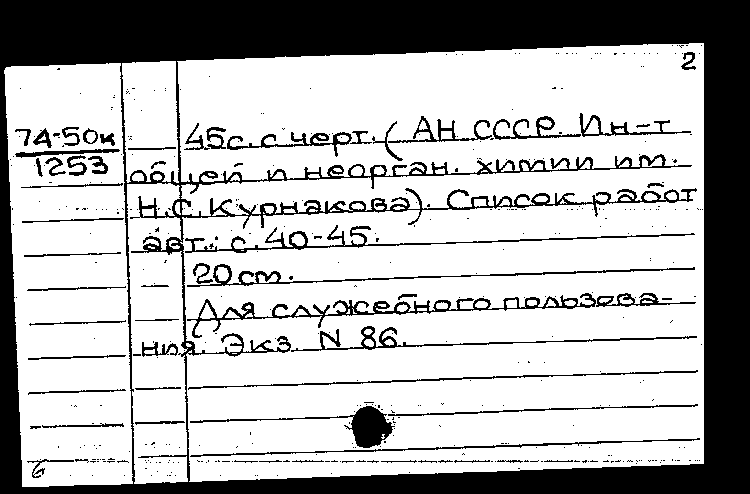 2
74-50к
1253
45с. с черт. (АН СССР. Ин-т
общей и неорган. химии им.
Н.С. Курнакова). Список работ
авт.: с. 40-45.
20 см.
Для служебного пользова-
ния. Экз. N 86.
6